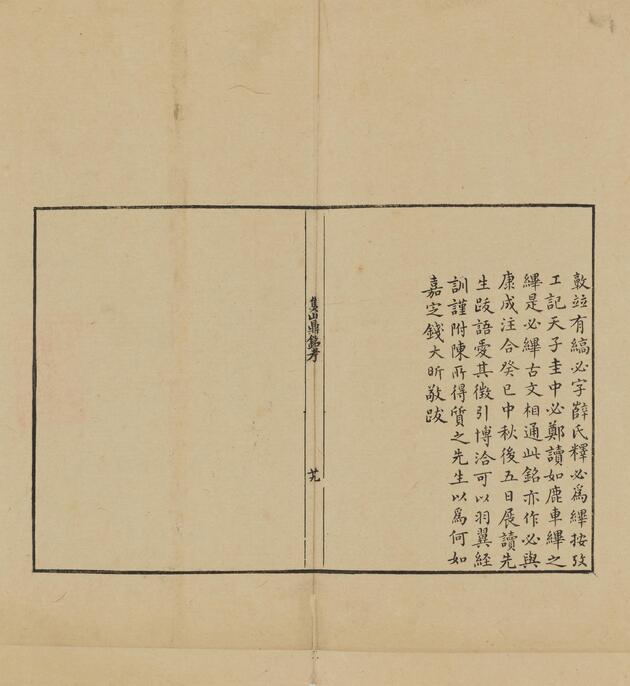 敦竝有縞必字薛氏釋必爲縪按攷
工記天子圭中必鄭讀如鹿車縪之
縪是必縪古文相通此銘亦作必與
康成注合癸巳中秋後五日展讀先
生跋語愛其徵引博洽可以羽翼経
訓謹附陳所得質之先生以爲何如
嘉定錢大昕敬跋
焦山鼎銘考
芄